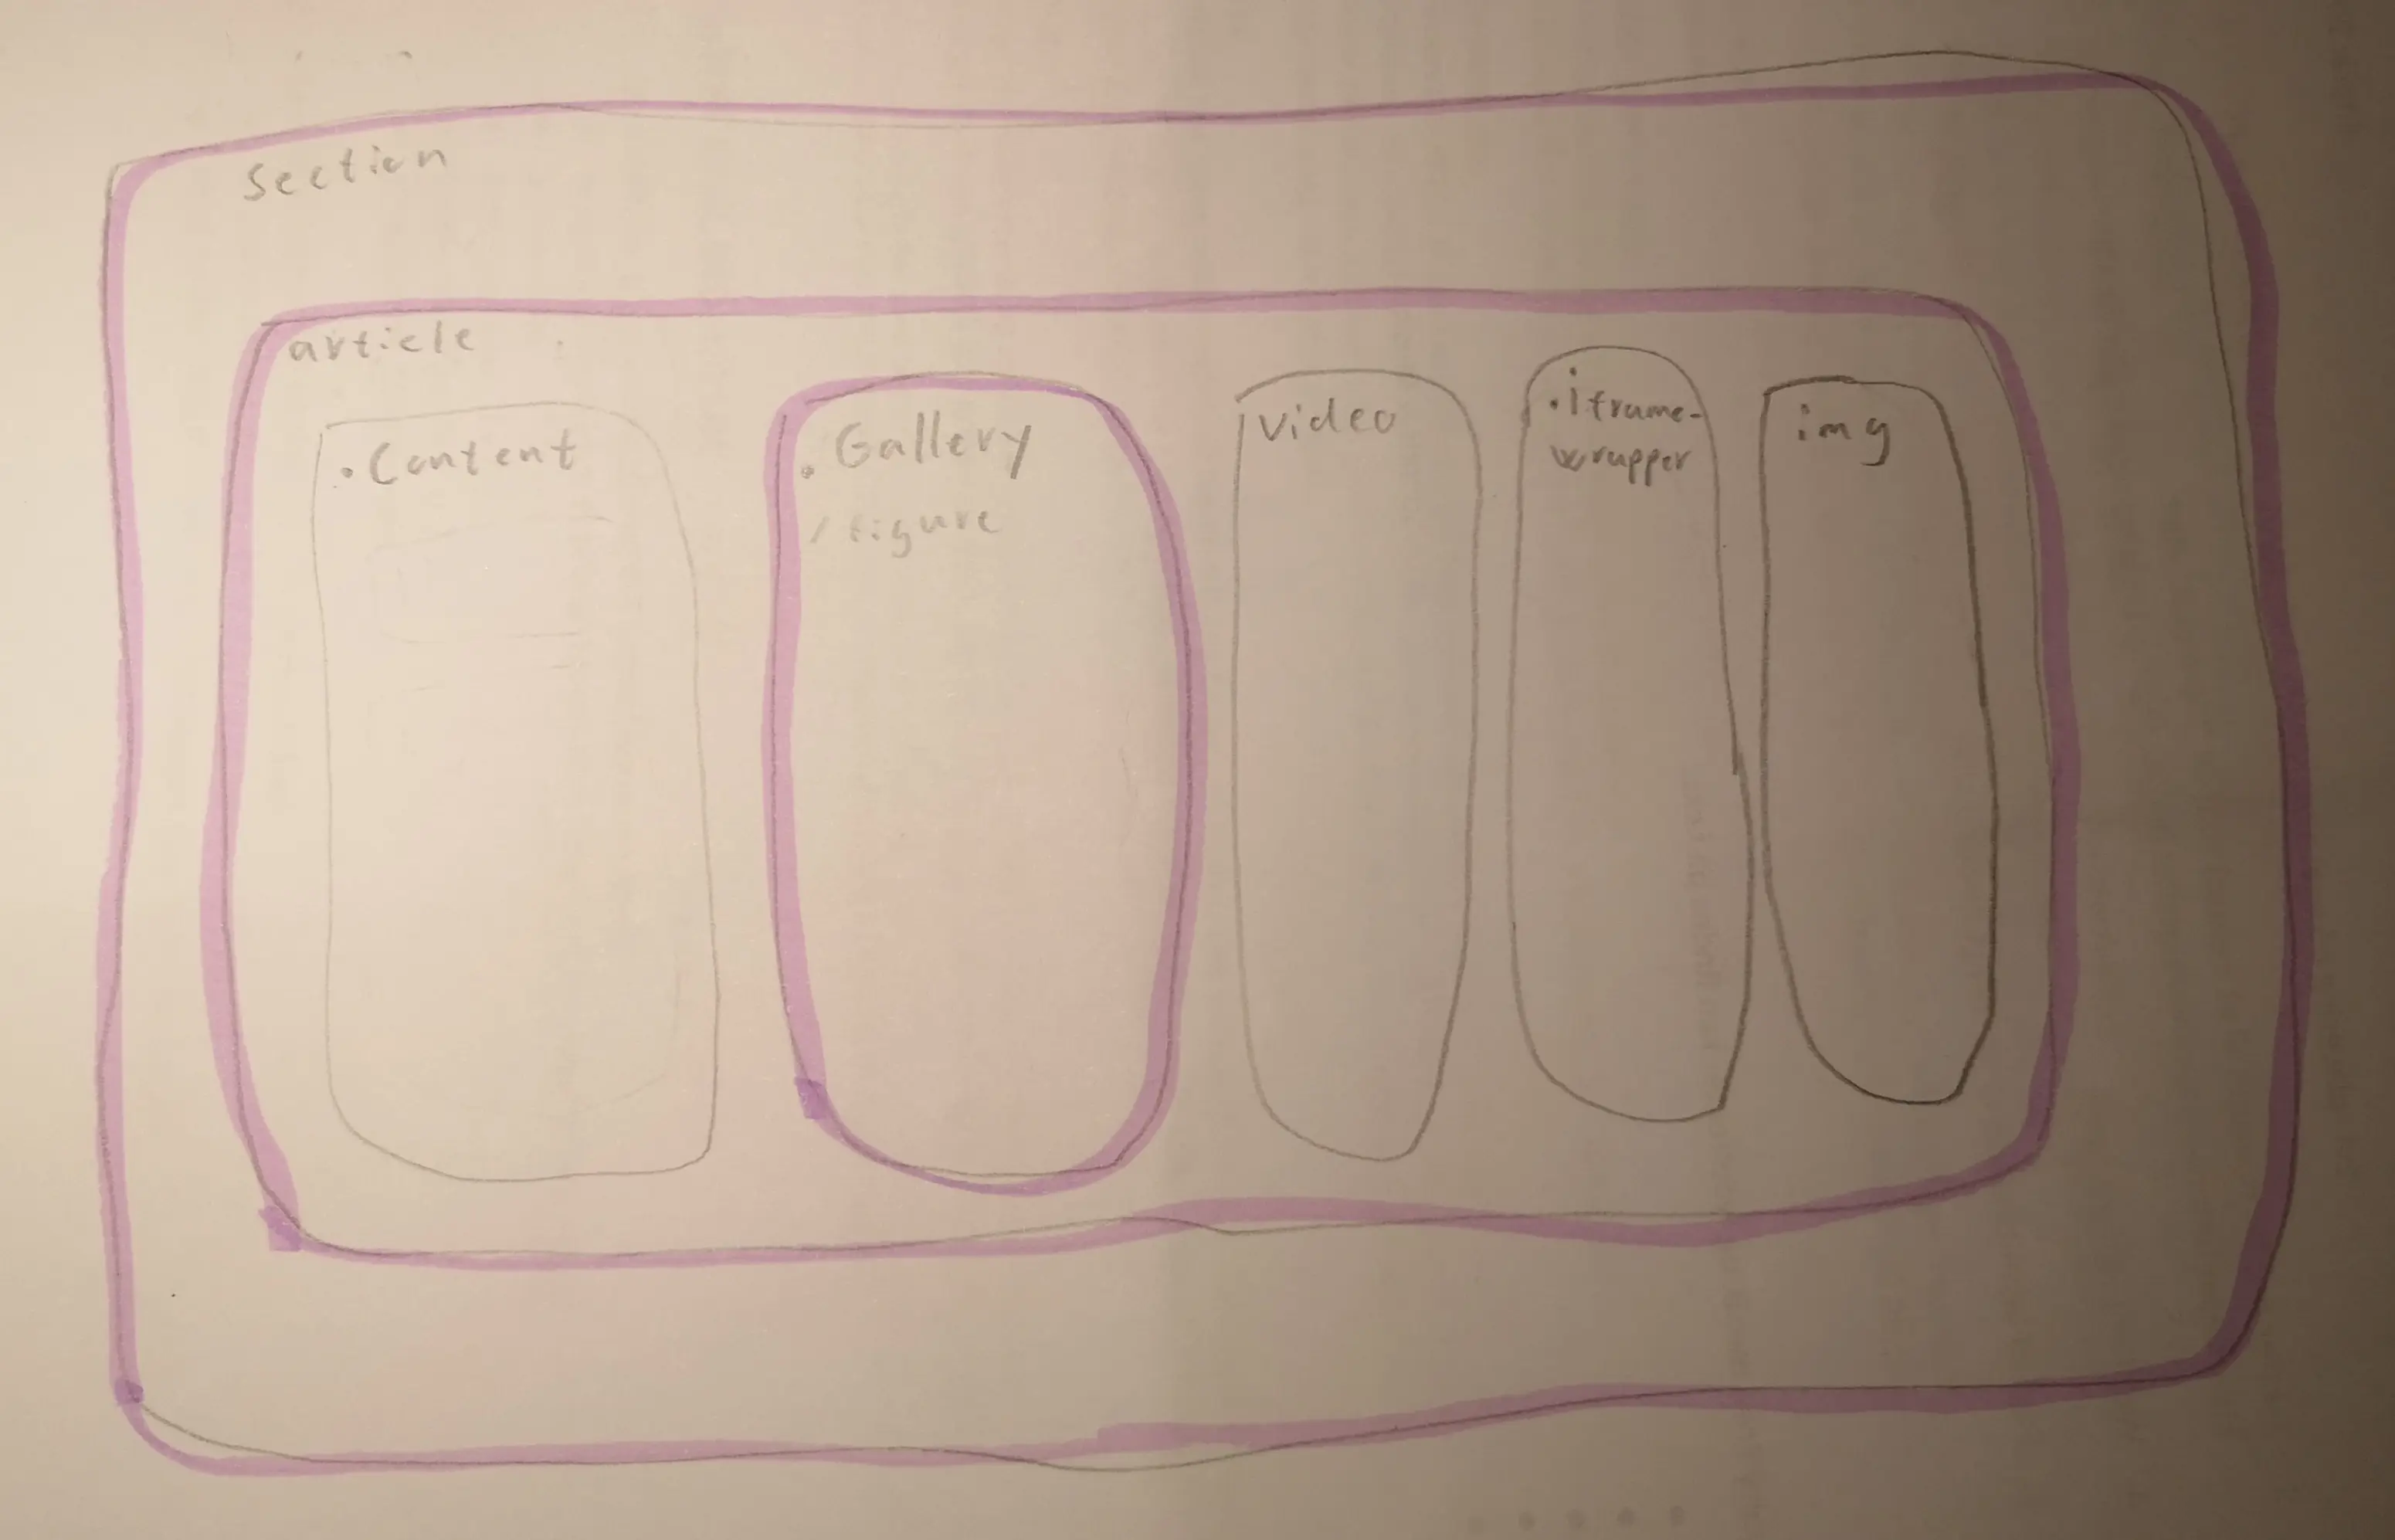 Section
article
.Content
.Gallery
/figure
video
.iframe-
wrapper
img